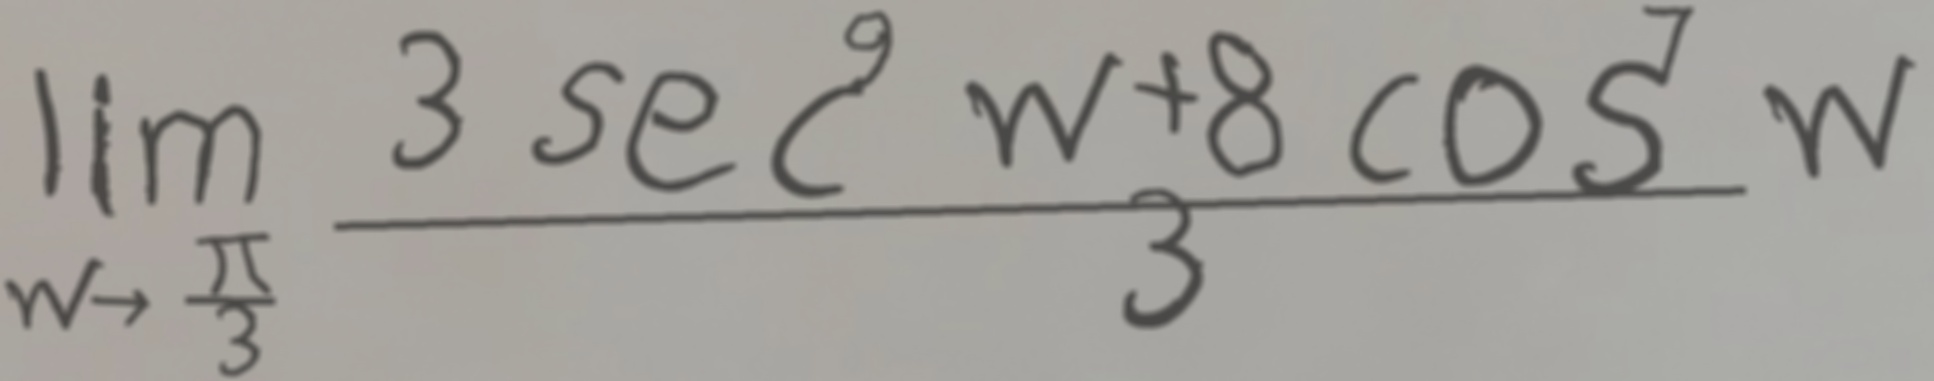 \lim_{w \to \frac{\pi}{3}} \frac{3 \sec^9 w + 8 \cos^7 w}{3}